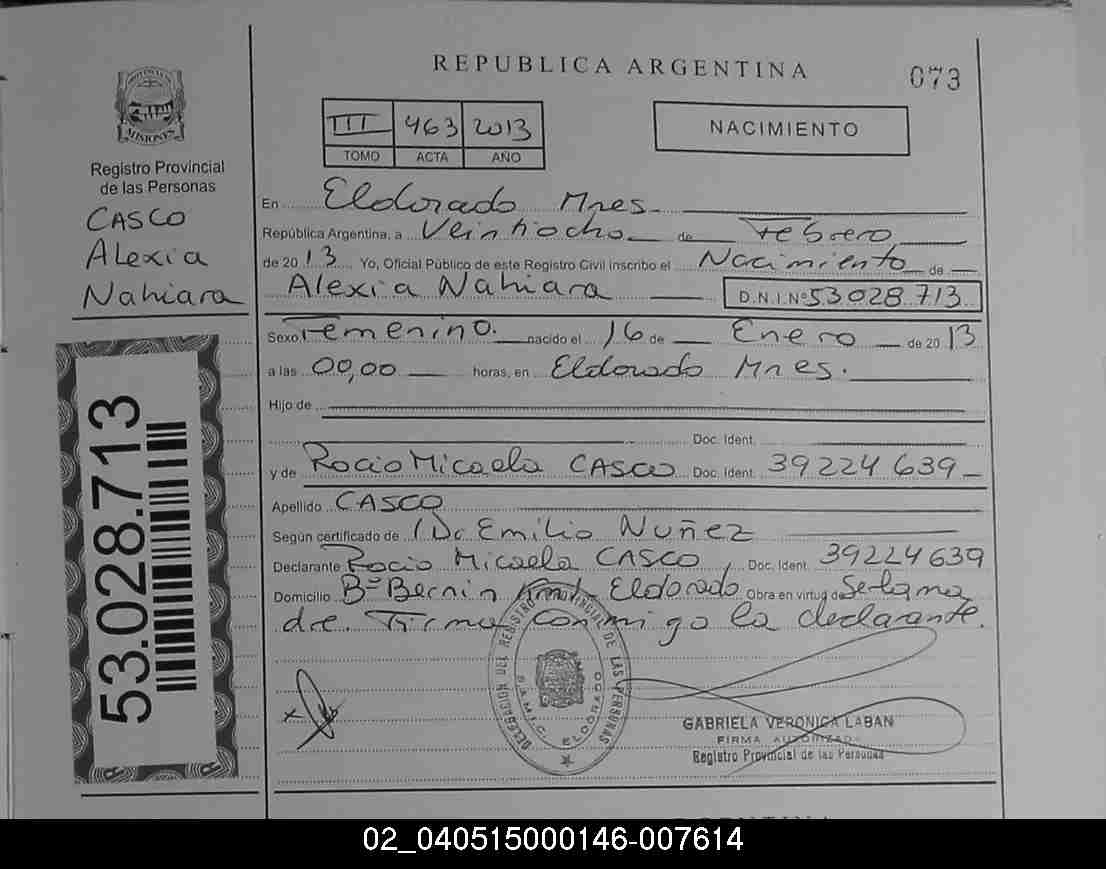 REPUBLICA ARGENTINA
073
MISIONES
Registro Provincial
de las Personas
CASCO
Alexia
Nahiara
53.028.713
III 463 2013
TOMO ACTA AÑO
NACIMIENTO
En Eldorado Mnes.
República Argentina, a Veintiocho de Febrero
de 2013 Yo, Oficial Público de este Registro Civil inscribo el Nacimiento de
Alexia Nahiara D.N.I.Nº 53028.713
Sexo Femenino. nacido el 16 de Enero de 2013
a las 00,00 horas, en Eldorado Mnes.
Hijo de
Doc. Ident.
y de Rocio Micaela CASCO Doc. Ident. 39224639
Apellido CASCO
Según certificado de Dr Emilio Nuñez
Declarante Rocio Micaela CASCO, Doc. Ident. 39224639
Domicilio Bº Bernin Eldorado Obra en virtud de Ser la ma
dre. Firma conmigo la declarante.
DELEGACION DEL REGISTRO PROVINCIAL DE LAS PERSONAS
ELDORADO
GABRIELA VERONICA LABAN
FIRMA AUTORIZADA
Registro Provincial de las Personas
02_040515000146-007614